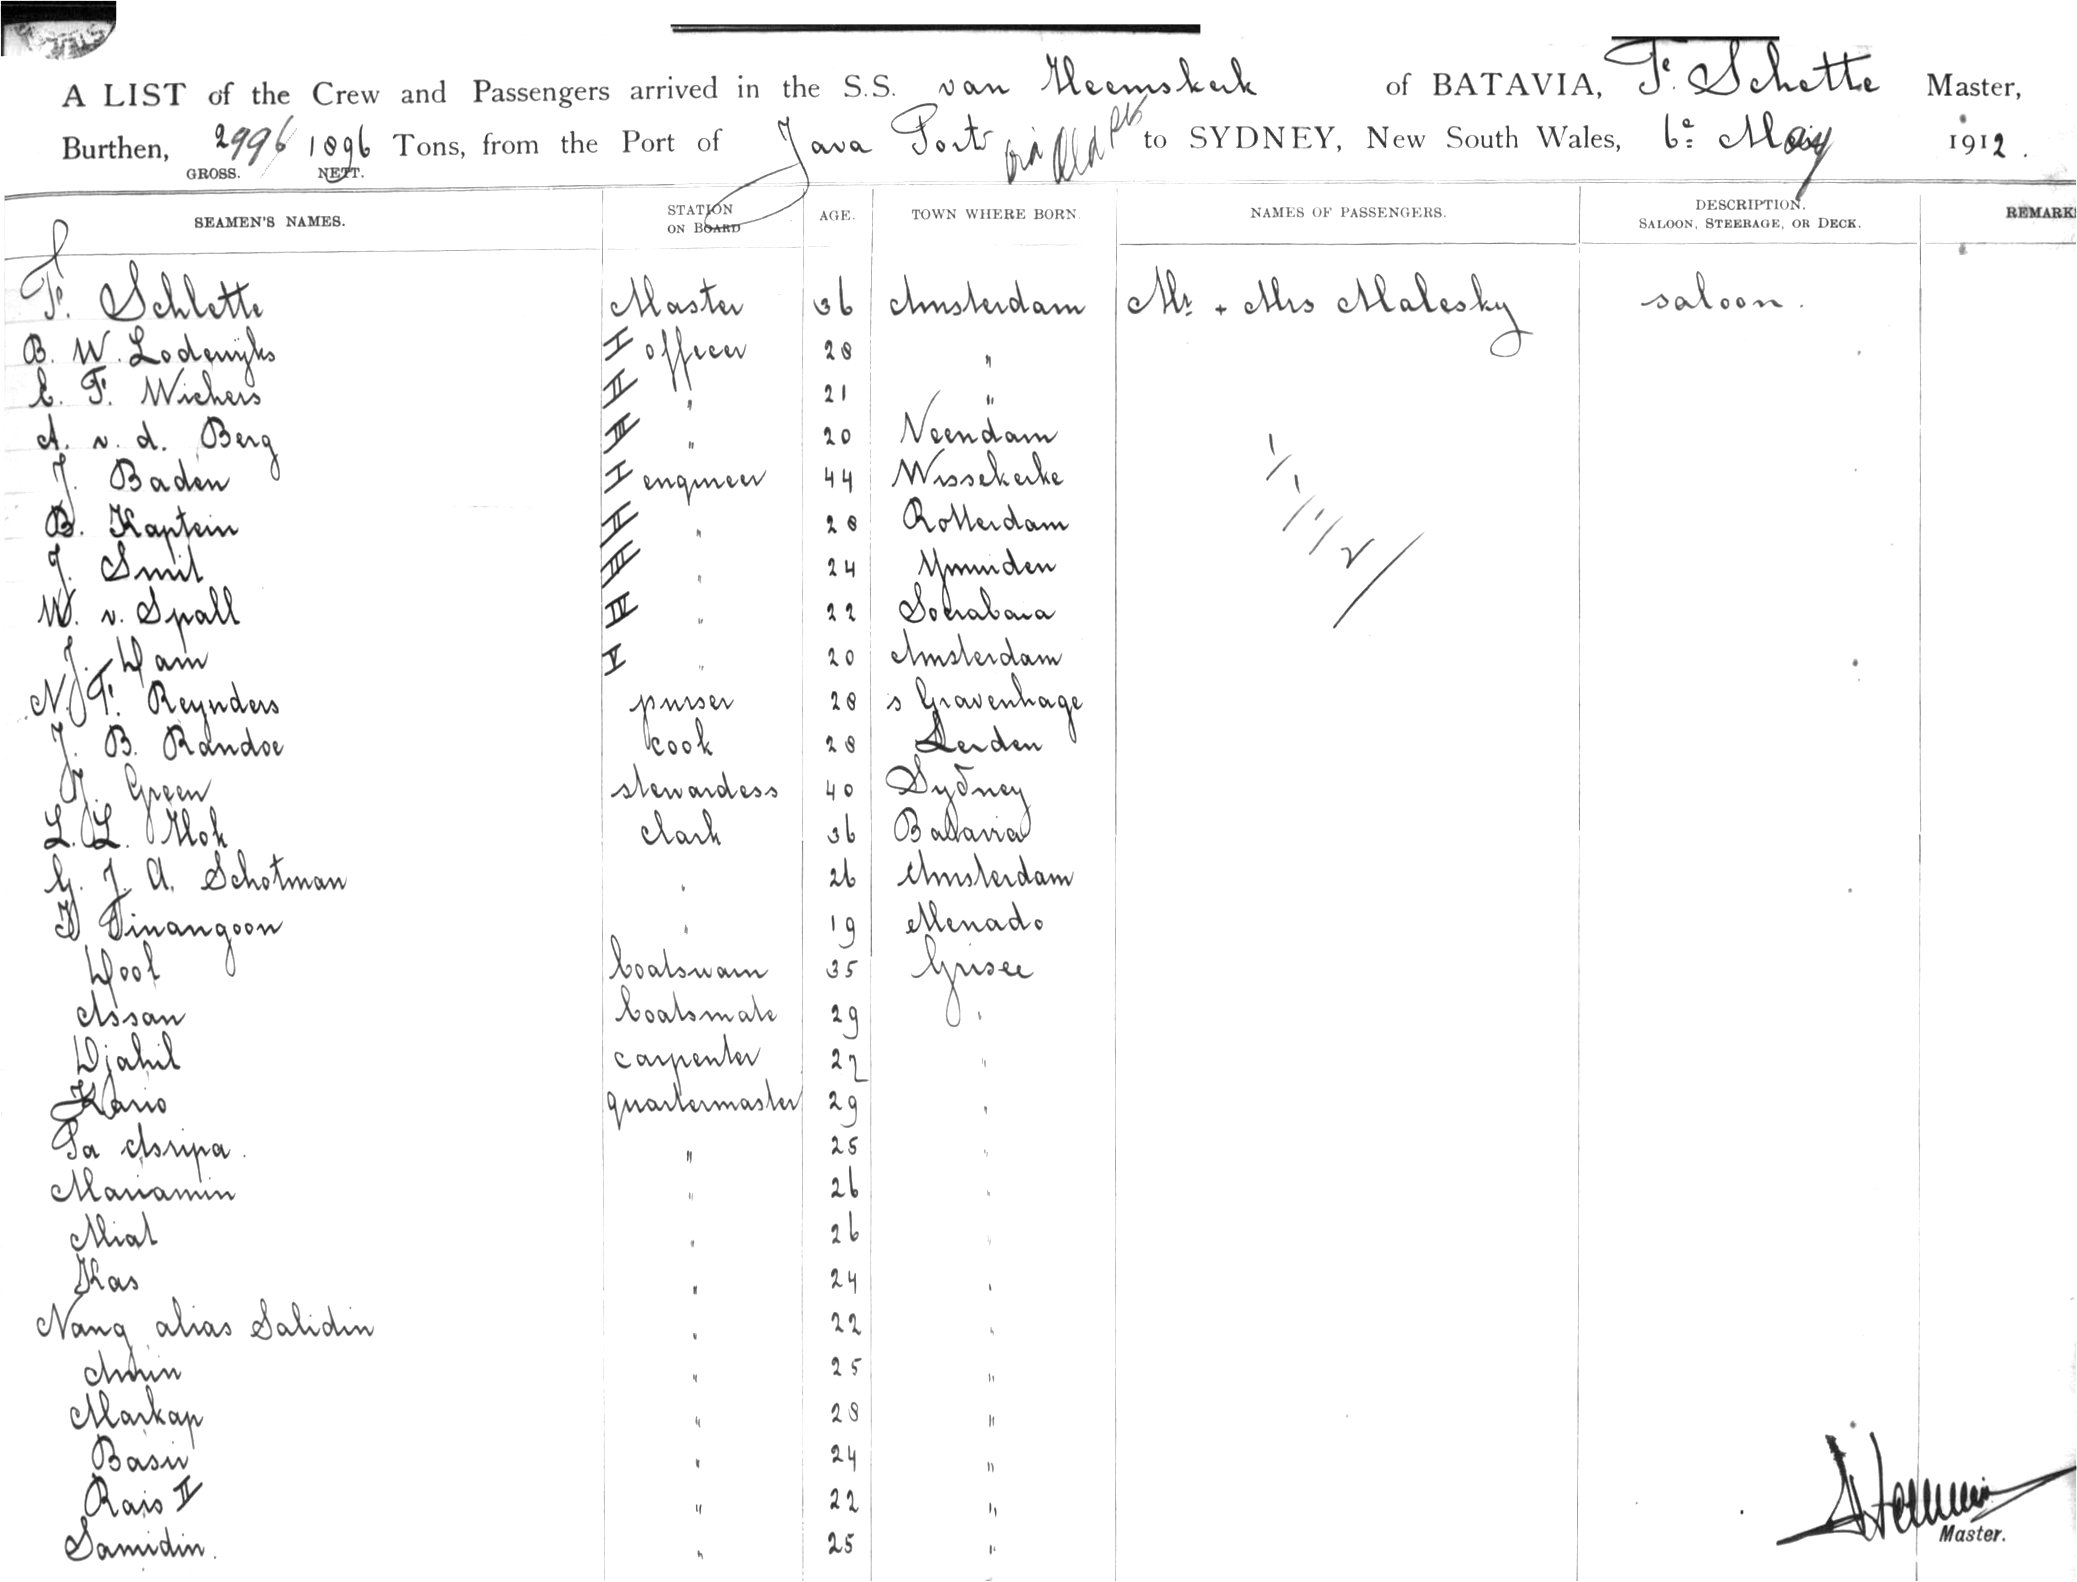 A LIST of the Crew and Passengers arrived in the S.S. van Heemskerk of BATAVIA, F. Schette Master,
Burthen, 2996 1896 Tons, from the Port of Java Ports via Qld pts to SYDNEY, New South Wales, 6e May 1912.
GROSS. NETT.
SEAMEN'S NAMES. STATION ON BOARD AGE. TOWN WHERE BORN. NAMES OF PASSENGERS. DESCRIPTION. SALOON, STEERAGE, OR DECK. REMARKS
F. Schlette Master 36 Amsterdam Mr. + Mrs Malesky saloon.
B. W. Lodewyks I officer 28 "
E. F. Wichers II " 21 "
A. v. d. Berg III " 20 Veendam
J. Baden I engineer 44 Wissekerke
B. Kaptein II " 28 Rotterdam
J. Smit III " 24 Ymuiden
W. v. Spall IV " 22 Soerabaia
J. Dam V " 20 Amsterdam
N. F. Reynders purser 28 s Gravenhage
J. B. Randoe cook 28 Leiden
J. Green stewardess 40 Sydney
L. L. Hok clark 36 Batavia
G. J. A. Schotman " 26 Amsterdam
Tinangoon " 19 Menado
Dool boatswain 35 Grisee
Assan boatsmate 29 "
Djahil carpenter 27 "
Kario quartermaster 29 "
Pa Asripa. " 25 "
Mariamin " 26 "
Miat " 26 "
Kas " 24 "
Nang alias Salidin " 22 "
Amin " 25 "
Markap " 28 "
Basir " 24 "
Rais II " 22 "
Samidin. " 25 "
1/1/11/2/
Master.